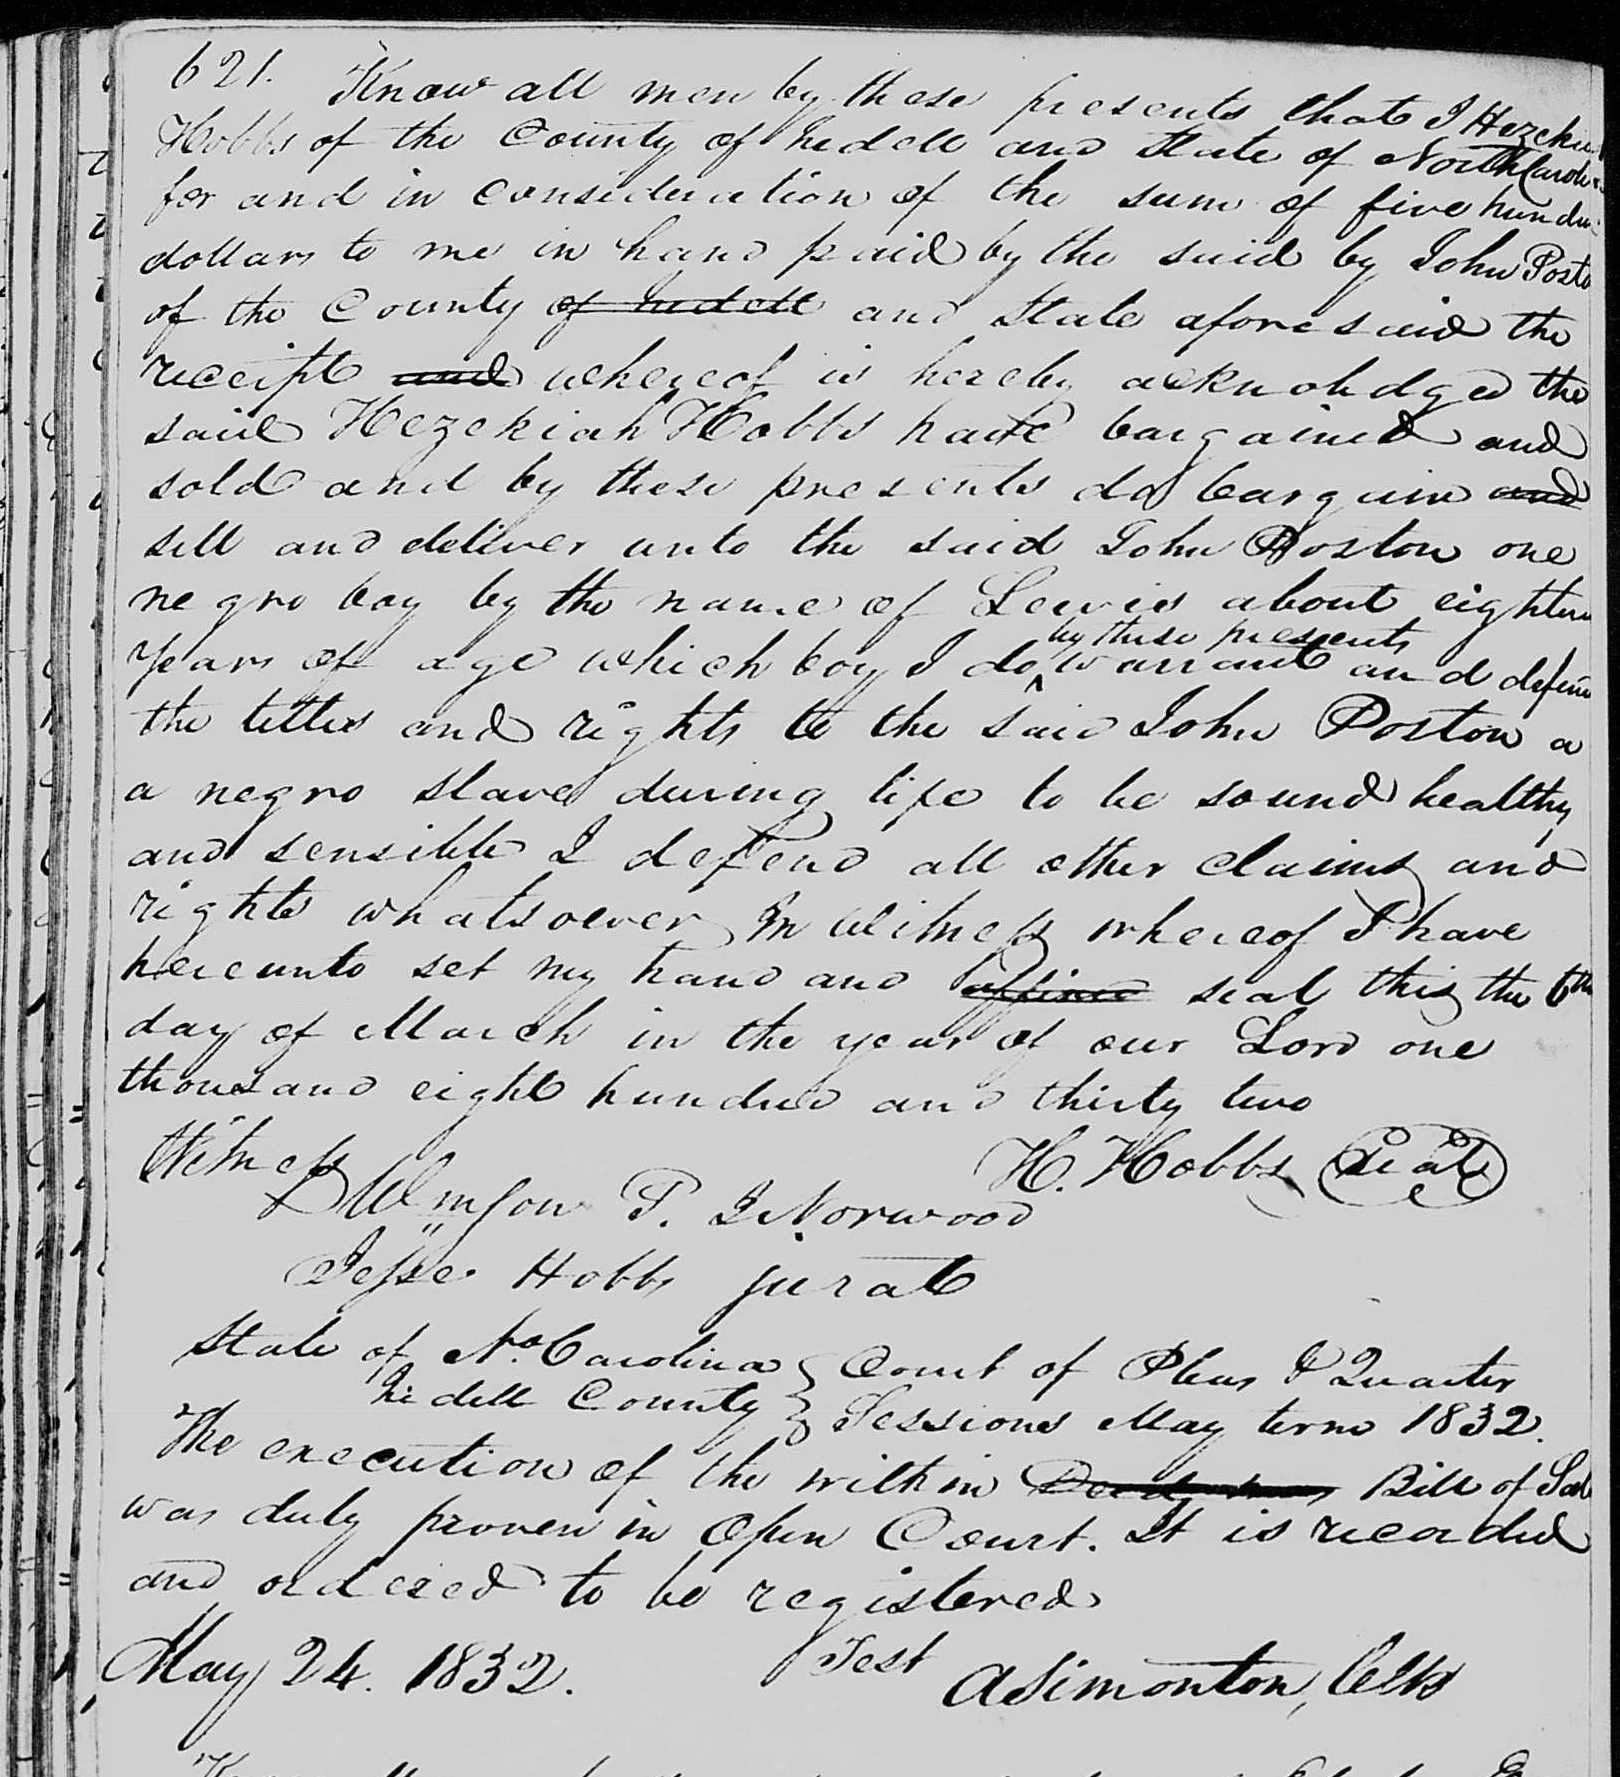 621. Know all men by these presents that I Hezekiah
Hobbs of the County of Iredell and State of North Carolina
for and in consideration of the sum of five hundred
dollars to me in hand paid by the said by John Posto
of the County of Iredell and State aforesaid the
receipt and whereof is hereby acknoledged the
said Hezekiah Hobbs have bargained and
sold and by these presents do bargain and
sell and deliver unto the said John Poston one
negro boy by the name of Lewis about eighteen
years of age which boy I do ^ by these presents warrant and defend
the titles and rights to the said John Poston a
a negro slave during life to be sound healthy
and sensible I defend all other claims and
rights whatsoever In Witness whereof I have
hereunto set my hand and affixed seal this the 6th
day of March in the year of our Lord one
thousand eight hundred and thirty two
Witness H. Hobbs Seal
P. I Norwood
Jesse Hobbs jurat
State of No. Carolina } Court of Pleas & Quarter
Iredell County } Sessions May term 1832.
The execution of the within Bill of Sale
was duly proven in Open Court. It is recorded
and ordered to be registered
May 24. 1832. Test A Simonton, Clk